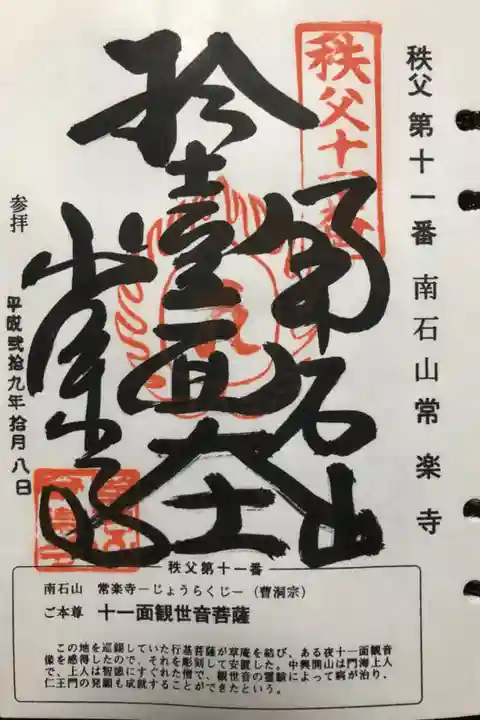 秩父 第十一番 南石山常楽寺
秩父十一番
南石山
拾壹面大士
常楽寺
参拝 平成弐拾九年拾月八日
秩父第十一番
南石山 常楽寺－じょうらくじ－(曹洞宗)
ご本尊 十一面観世音菩薩
この地を巡錫していた行基菩薩が草庵を結び、ある夜十一面観音
像を感得したので、それを彫刻して安置した。中興開山は門海上人
で、上人は智徳にすぐれた僧で、観世音の霊験によって病が治り、
仁王門の発願も成就することができたという。